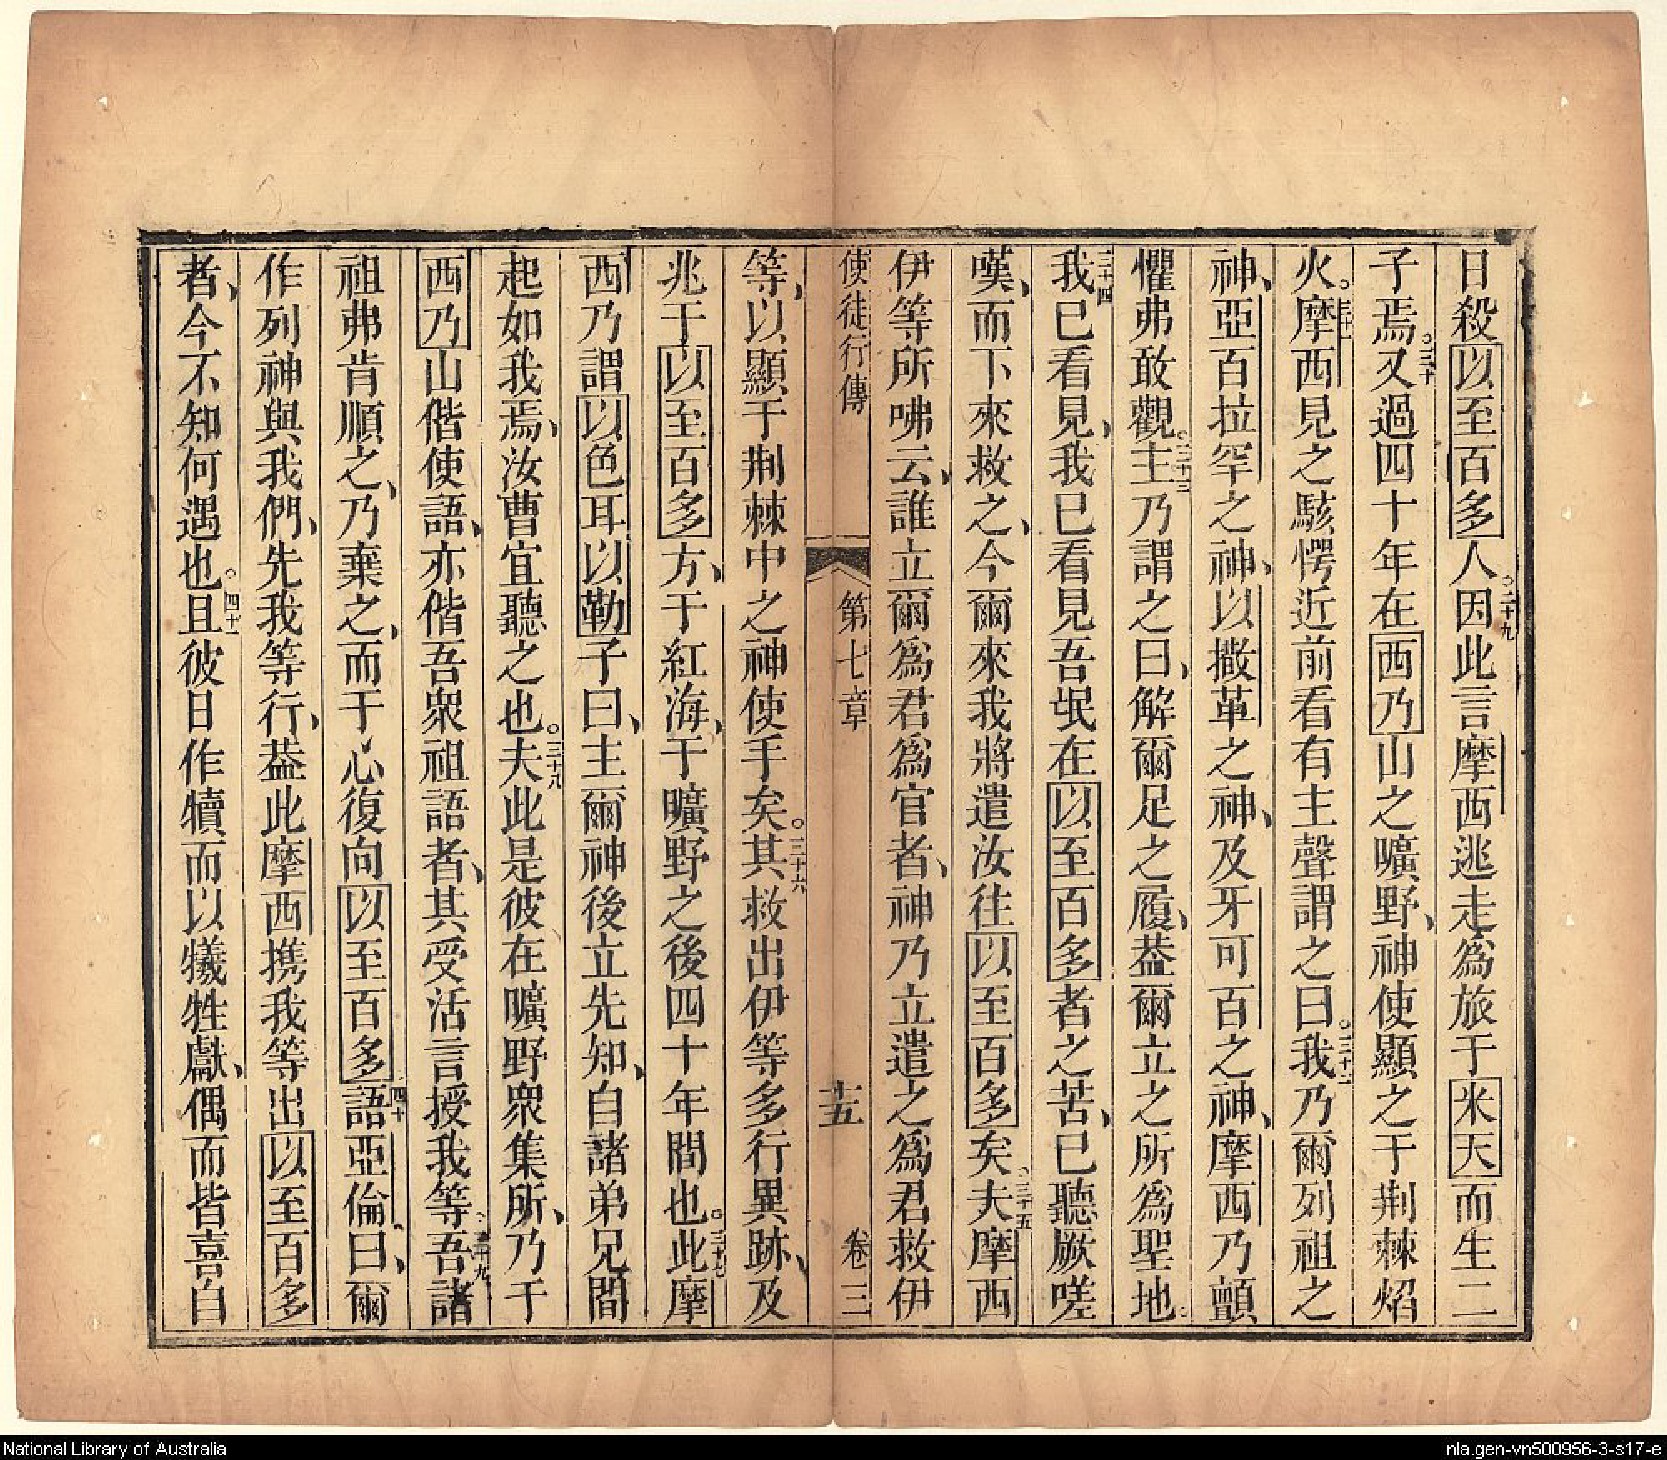 日殺以至百多人。二十九因此言摩西逃走爲旅于米天而生二
子焉。三十又過四十年在西乃山之曠野、神使顯之于荆棘焰
火。三十一摩西見之駭愕近前看有主聲謂之曰。三十二我乃爾列祖之
神、亞百拉罕之神、以撒革之神、及牙可百之神、摩西乃顫
懼弗敢觀。三十三主乃謂之曰、解爾足之履、葢爾立之所爲聖地。
三十四我已看見、我已看見吾氓在以至百多者之苦、已聽厥嗟
嘆、而下來救之、今爾來我將遣汝往以至百多矣。三十五夫摩西
伊等所咈云、誰立爾爲君爲官者、神乃立遣之爲君救伊
使徒行傳 第七章 十五 卷三
等、以顯于荆棘中之神使手矣。三十六其救出伊等多行異跡、及
兆于以至百多方、于紅海、于曠野之後四十年間也。三十七此摩
西乃謂以色耳以勒子曰、主爾神後立先知、自諸弟兄間
起如我焉、汝曹宜聽之也。三十八夫此是彼在曠野衆集所、乃于
西乃山偕使語、亦偕吾衆祖語者、其受活言授我等、三十九吾諸
祖弗肯順之、乃棄之、而于心復向以至百多、四十語亞倫、曰、爾
作列神與我們、先我等行、葢此摩西携我等出以至百多
者、今不知何遇也。四十一且彼日作犢而以犧牲獻、偶而皆喜自
National Library of Australia
nla.gen-vn500956-3-s17-e